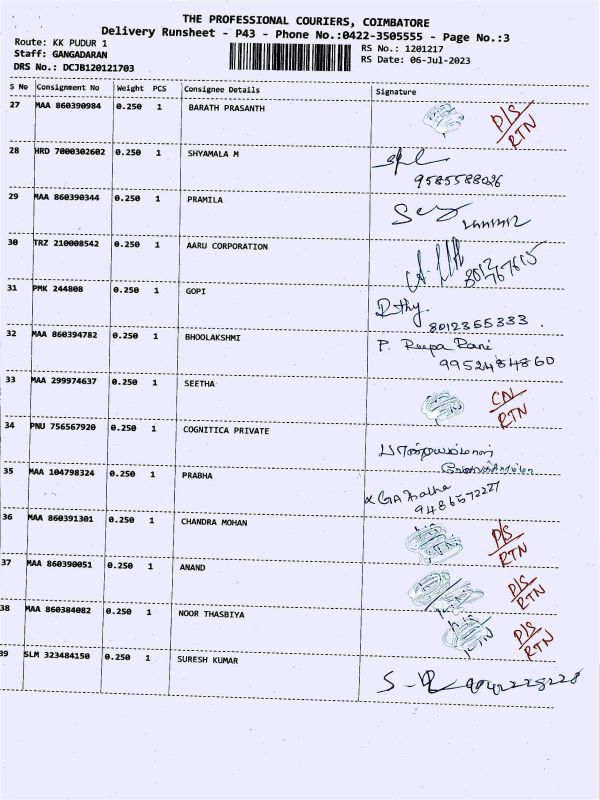 THE PROFESSIONAL COURIERS, COIMBATORE
Delivery Runsheet - P43 - Phone No.:0422-3505555 - Page No.:3
Route: KK PUDUR 1
RS No.: 1201217
Staff: GANGADARAN
RS Date: 06-Jul-2023
DRS No.: DCJB120121703
S No Consignment No Weight PCS Consignee Details Signature
27 MAA 860390984 0.250 1 BARATH PRASANTH P/S RTN
28 HRD 7000302602 0.250 1 SHYAMALA M
9585588026
29 MAA 860390344 0.250 1 PRAMILA
30 TRZ 210008542 0.250 1 AARU CORPORATION
31 PMK 244808 0.250 1 GOPI
8012355333.
32 MAA 860394782 0.250 1 BHOOLAKSHMI P. Reepa Rani
9952484860
33 MAA 299974637 0.250 1 SEETHA CN/RTN
34 PNU 756567920 0.250 1 COGNITICA PRIVATE
35 MAA 104798324 0.250 1 PRABHA
9486572227
36 MAA 860391301 0.250 1 CHANDRA MOHAN P/S RTN
37 MAA 860390051 0.250 1 ANAND P/S RTN
38 MAA 860384082 0.250 1 NOOR THASBIYA P/S RTN
39 SLM 323484150 0.250 1 SURESH KUMAR